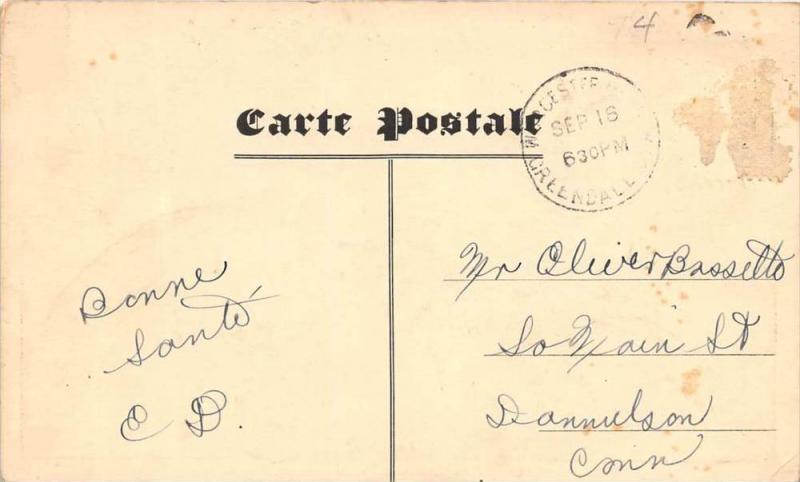 74
Carte Postale
WORCESTER
SEP 16
630PM
GREENDALE
Bonne
Santé
E D.
Mr Oliver Bassette
So Main St
Dannielson
Conn